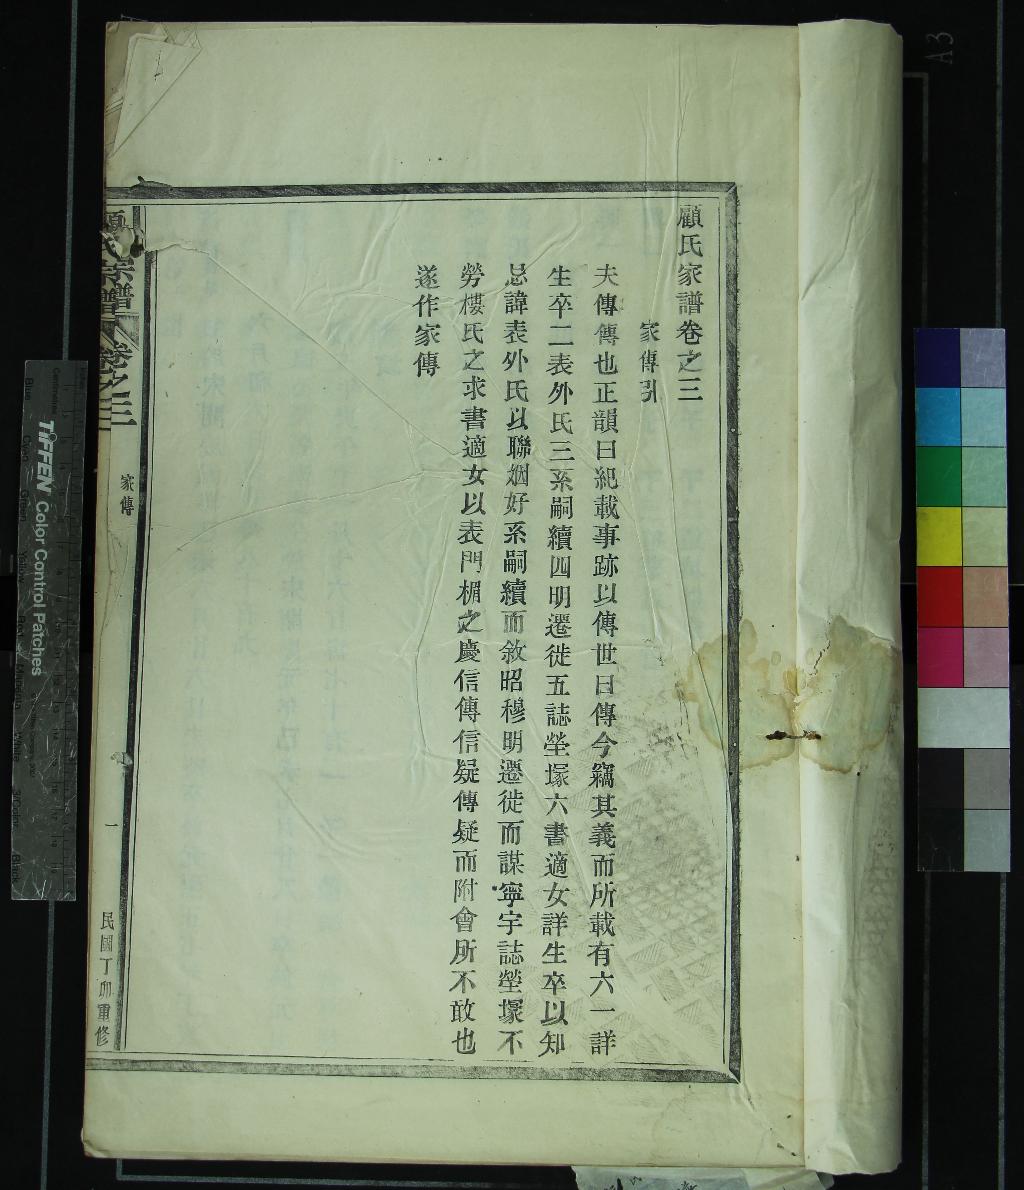 顧氏家譜卷之三
家傳引
夫傳傳也正韻曰紀載事跡以傳世曰傳今竊其義而所載有六一詳
生卒二表外氏三系嗣續四明遷徙五誌塋塚六書適女詳生卒以知
忌諱表外氏以聯姻好系嗣續而敘昭穆明遷徙而謀寧宇誌塋塚不
勞樓氏之求書適女以表門楣之慶信傳信疑傳疑而附會所不敢也
遂作家傳
顧氏宗譜
卷之三
家傳
一
民國丁卯重修
TIFFEN Color Control Patches
A3